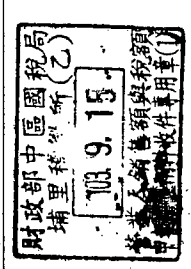 財政部中區國稅局
埔里稽徵所(乙)
103. 9. 15
營業人銷售額與稅額
收件專用章(1)